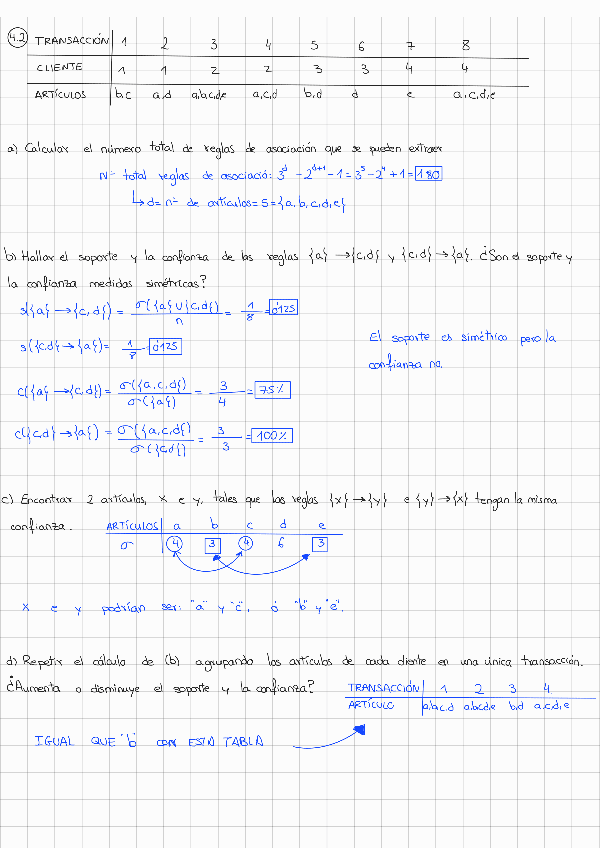 4.2 TRANSACCIÓN 1 2 3 4 5 6 7 8
CLIENTE 1 1 2 2 3 3 4 4
ARTÍCULOS b,c a,d a,b,c,d,e a,c,d b,d d e a,c,d,e
a) Calcular el número total de reglas de asociación que se pueden extraer
Nº total reglas de asociació: 3^d - 2^(d+1) - 1 = 3^5 - 2^4 + 1 = 180
↳ d = nº de artículos = 5 = {a, b, c, d, e}
b) Hallar el soporte y la confianza de las reglas {a} → {c,d} y {c,d} → {a}. ¿Son el soporte y
la confianza medidas simétricas?
s({a} → {c,d}) = σ({a} ∪ {c,d}) / n = 1/8 = 0'125
s({c,d} → {a}) = 1/8 = 0'125
El soporte es simétrico pero la
confianza no.
c({a} → {c,d}) = σ({a,c,d}) / σ({a}) = 3/4 = 75%
c({c,d} → {a}) = σ({a,c,d}) / σ({c,d}) = 3/3 = 100%
c) Encontrar 2 artículos, x e y, tales que las reglas {x} → {y} e {y} → {x} tengan la misma
confianza.
ARTÍCULOS a b c d e
σ 4 3 4 6 3
x e y podrían ser: "a" y "c", ó "b" y "e".
d) Repetir el cálculo de (b) agrupando los artículos de cada cliente en una única transacción.
¿Aumenta o disminuye el soporte y la confianza?
TRANSACCIÓN 1 2 3 4
ARTÍCULO a,b,c,d a,b,c,d,e b,d a,c,d,e
IGUAL QUE "b" con ESTA TABLA